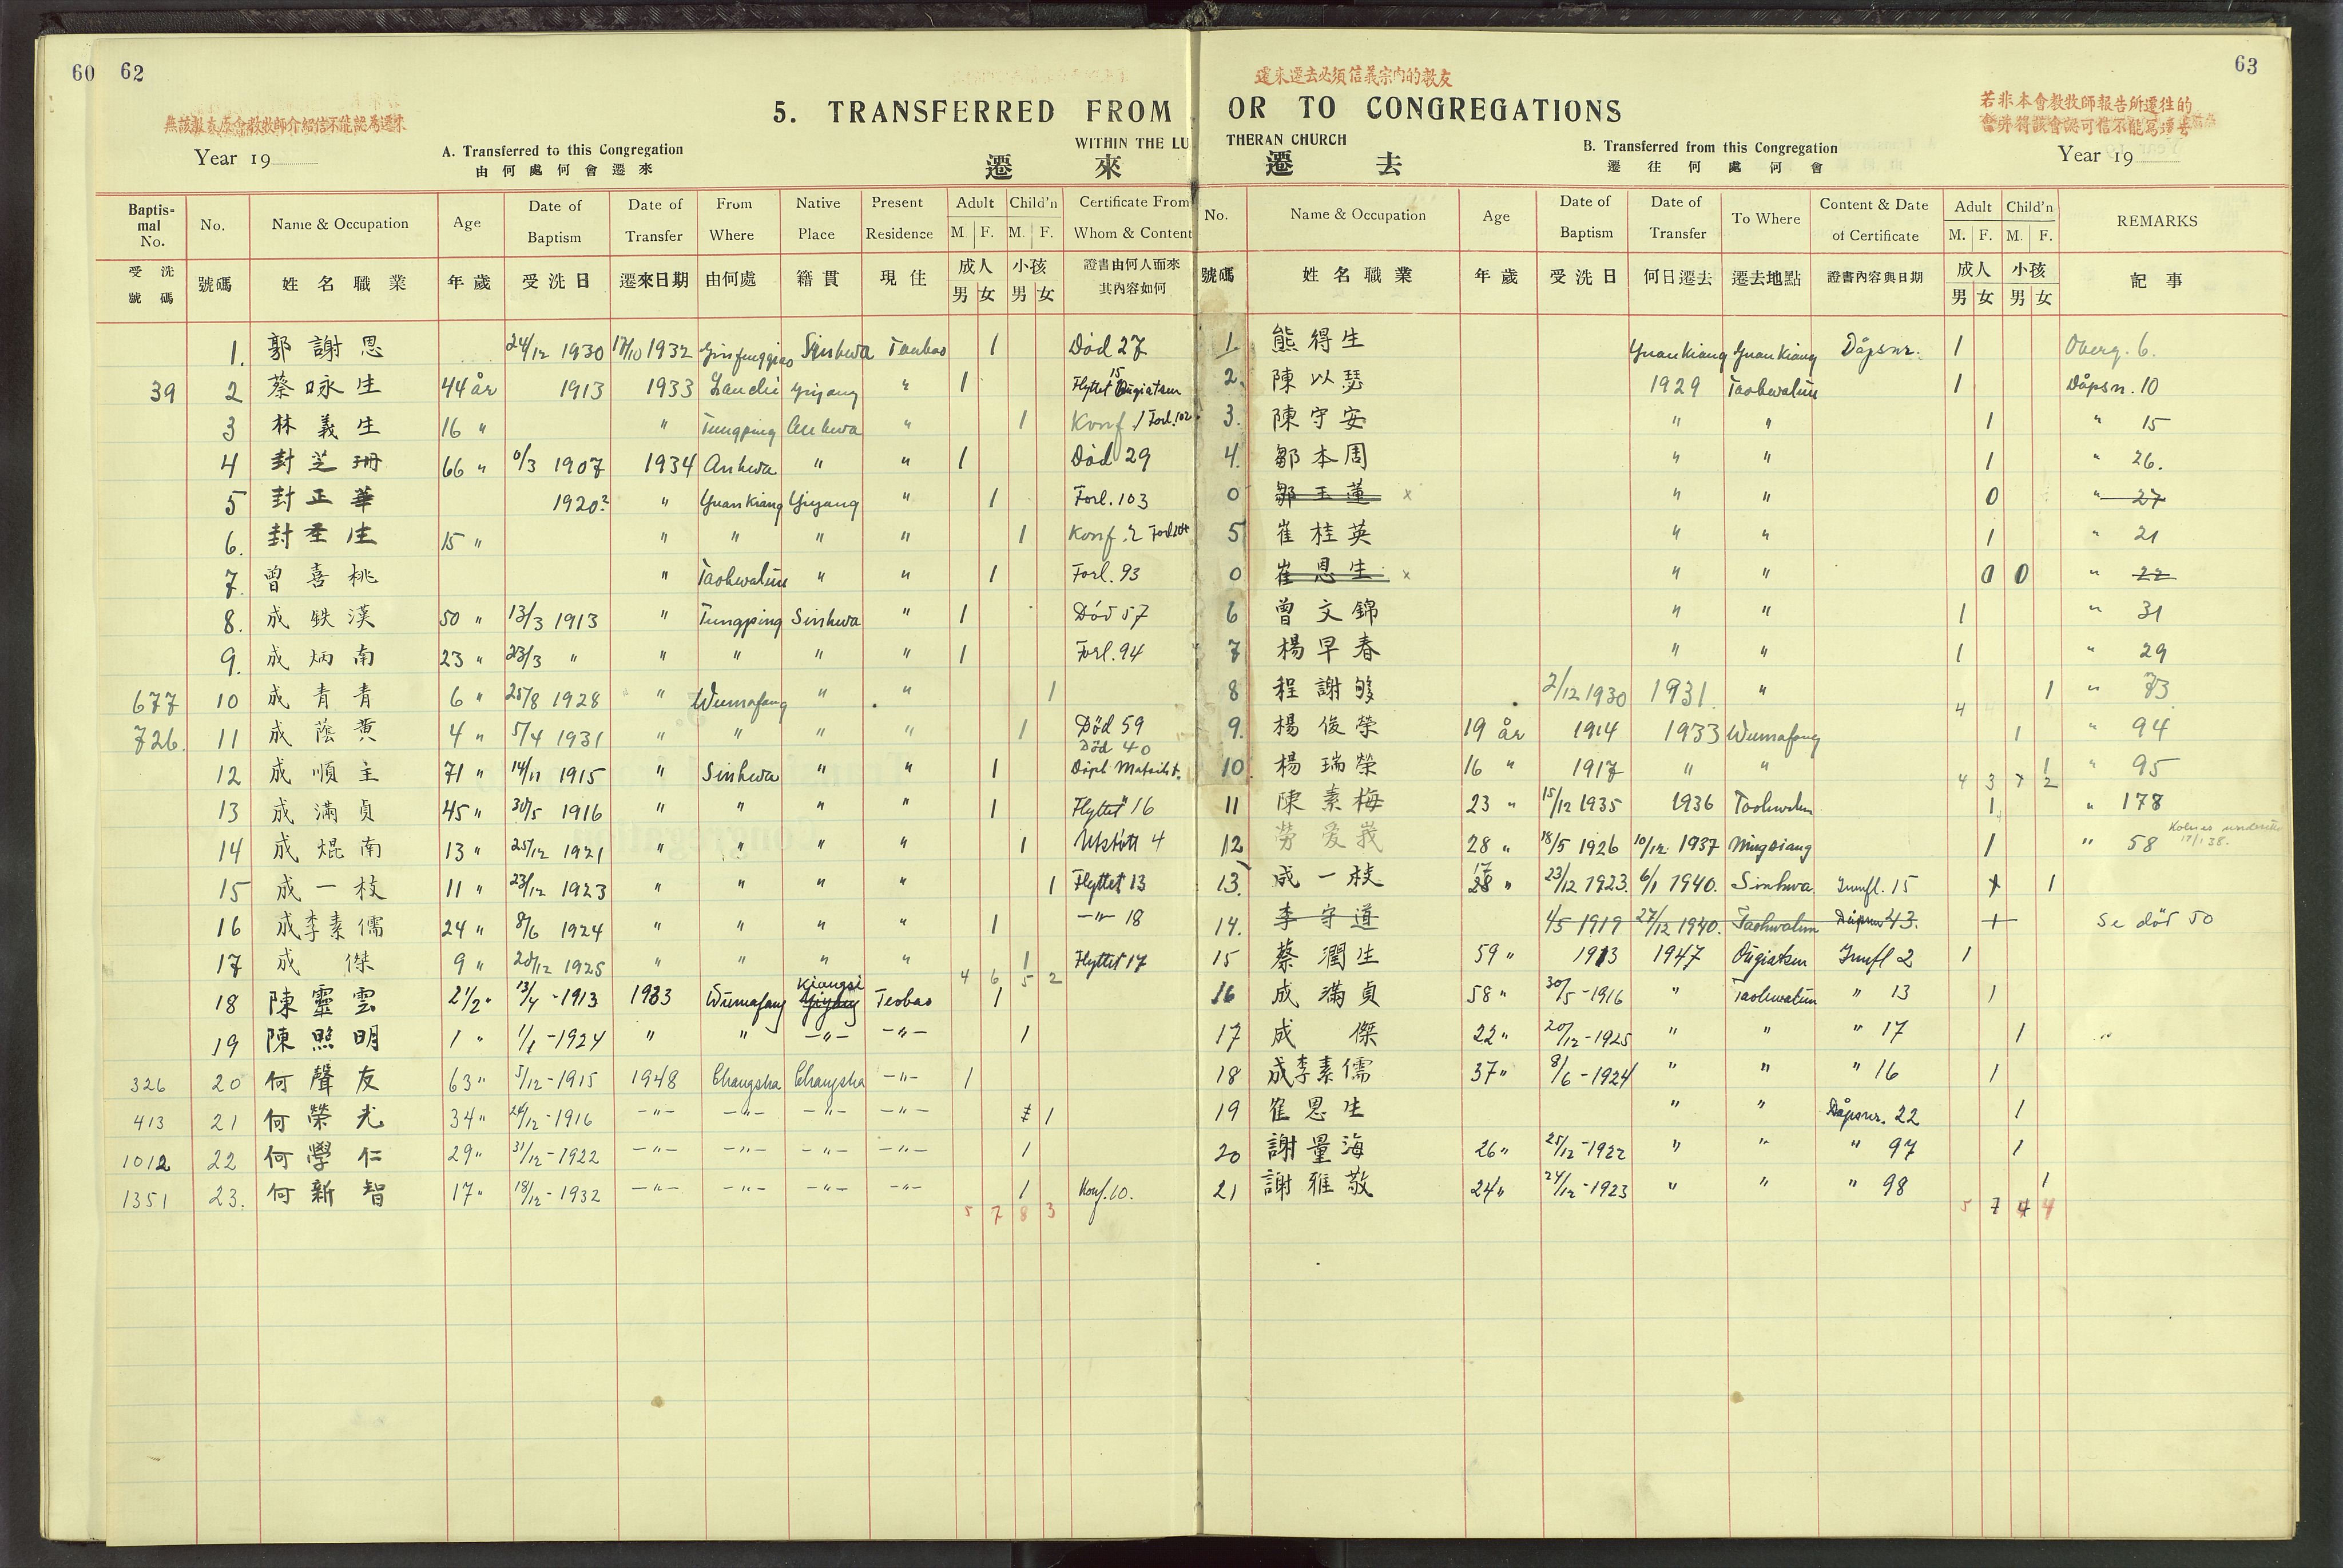 60 62
無該教友原會教牧師介紹信不能認為遷來
5. TRANSFERRED FROM
WITHIN THE LU
Year 19
A. Transferred to this Congregation
由何處何會遷來
遷 來
Baptismal No. No. Name & Occupation Age Date of Baptism Date of Transfer From Where Native Place Present Residence Adult M. F. Child'n M. F. Certificate From Whom & Content
受洗號碼 號碼 姓名職業 年歲 受洗日 遷來日期 由何處 籍貫 現住 成人 男 女 小孩 男 女 證書由何人而來其內容如何
1. 郭謝恩 24/12 1930 17/10 1932 Sinhwa Taohao 1 Död 27
39 2 蔡咏生 44 år 1913 1933 Yiyang " 1 Flyttet 15
3 林義生 16 " " Tungping Anhwa " 1 Konf. 1 Forl. 102
4 封芝珊 66 " 1907 1934 Anhwa " " 1 Död 29
5 封正華 1920? " Yuankiang Yiyang " 1 Forl. 103
6. 封圣生 15 " " " " " 1 Konf. 2 Forl. 104
7. 曾喜桃 " Taohwalun " " 1 Forl. 93
8. 成鉄漢 50 " 13/3 1913 " Tungping Sinhwa " 1 Död 57
9. 成炳南 23 " 23/3 " " " " " 1 Forl. 94
677 10 成青青 6 " 25/8 1928 " Wumafang " " 1
726. 11 成蔭黄 4 " 5/4 1931 " " " " 1 Död 59
Död 40
12 成順主 71 " 14/11 1915 " Sinhwa " " 1
13 成滿貞 45 " 30/5 1916 " " " " 1 Flyttet 16
14 成焜南 13 " 25/12 1921 " " " " 1 Utstött 4
15 成一枝 11 " 23/12 1923 " " " " 1 Flyttet 13
16 成李素儒 24 " 8/6 1924 " " " " 1 -"- 18
17 成 傑 9 " 20/12 1925 " " " " 1 Flyttet 17
4 6 5 2
18 陳靈雲 2 1/2 " 13/4 -1913 1933 Wumafang Kiangsi Yiyang Teobao 1
19 陳照明 1 " 1/1 -1924 " " -"- -"- 1
326 20 何聲友 63 " 5/12 -1915 1948 Changsha Changsha -"- 1
413 21 何榮光 34 " 24/12 -1916 -"- -"- -"- -"- 1
1012 22 何學仁 29 " 31/12 -1922 -"- -"- -"- -"- 1
1351 23. 何新智 17 " 18/12 -1932 -"- -"- -"- -"- 1 Konf. 10.
5 7 8 3
63
遷來遷去必須信義宗內的教友
OR TO CONGREGATIONS
THERAN CHURCH
若非本會教牧師報告所遷往的
會并得該會認可信不能寫遷去
B. Transferred from this Congregation
遷往何處何會
遷 去
Year 19
No. Name & Occupation Age Date of Baptism Date of Transfer To Where Content & Date of Certificate Adult M. F. Child'n M. F. REMARKS
號碼 姓名職業 年歲 受洗日 何日遷去 遷去地點 證書內容與日期 成人 男 女 小孩 男 女 記事
1. 熊得生 Yuankiang Yuankiang Dåpsnr. 1 Överg. 6.
2. 陳以瑟 1929 Taohwalun 1 Dåpsn. 10
3. 陳守安 " " 1 " 15
4. 鄒本周 " " 1 " 26.
0 鄒玉蓮 x " " 0 " 27
5 崔桂英 " " 1 " 21
0 崔恩生 x " " 0 0 " 22
6 曾文錦 " " 1 " 31
7 楊早春 " " 1 " 29
8 程謝够 2/12 1930 1931. " 1 " 73
4
9. 楊俊榮 19 år 1914 1933 Wumafang 1 " 94
10. 楊瑞榮 16 " 1917 " " 1 " 95
4 3 2
11 陳素梅 23 " 15/12 1935 1936 Taohwalun 1 " 178
12 勞愛義 28 " 18/5 1926 10/12 1937 Ningsiang 1 " 58
17/1 38.
13. 成一枝 17 28 " 23/12 1923. 6/1 1940. Sinhwa Innfl. 15 1
14. 李守道 4/5 1919 27/12 1940. Taohwalun Dåpsnr 43. 1 Se död 50
15 蔡潤生 59 " 1913 1947 Innfl 2 1
16 成滿貞 58 " 30/5 -1916 " Taohwalun " 13 1
17 成 傑 22 " 20/12 -1925 " " " 17 1
18 成李素儒 37 " 8/6 -1924 " " " 16 1
19 崔恩生 " " Dåpsnr. 22 1
20 謝量海 26 " 25/12 -1922 " " " 97 1
21 謝雅敬 24 " 24/12 -1923 " " " 98 1
5 7 4 4